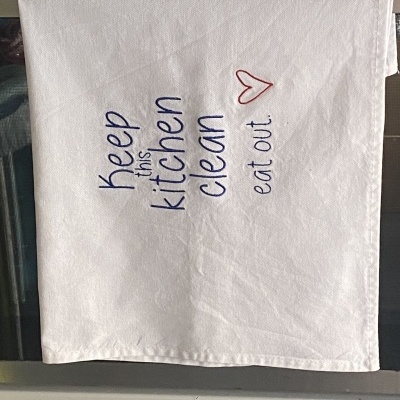 Keep
this
kitchen
clean
eat out.